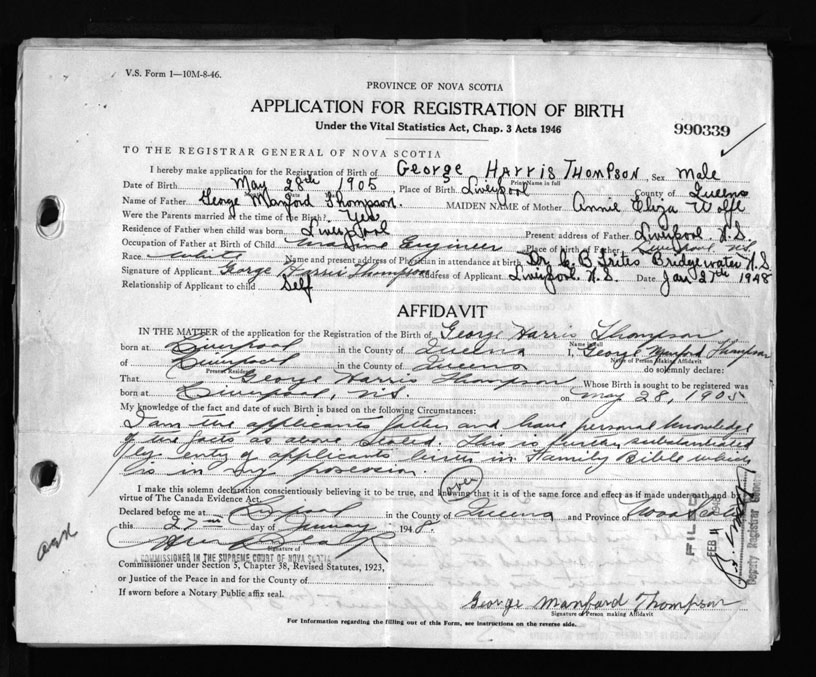 V.S. Form 1—10M-8-46.
PROVINCE OF NOVA SCOTIA
APPLICATION FOR REGISTRATION OF BIRTH
Under the Vital Statistics Act, Chap. 3 Acts 1946
990339
TO THE REGISTRAR GENERAL OF NOVA SCOTIA
I hereby make application for the Registration of Birth of George Harris Thompson, Sex Male
Print Name in full
Date of Birth May 28th 1905, Place of Birth Liverpool County of Queens
Name of Father George Manford Thompson. MAIDEN NAME of Mother Annie Eliza Wolfe
Were the Parents married at the time of the Birth? Yes
Residence of Father when child was born Liverpool Present address of Father Liverpool. N.S.
Occupation of Father at Birth of Child Marine Engineer Place of Birth of Father Liverpool N.S.
Race White Name and present address of Physician in attendance at birth Dr. B Bridgewater N.S.
Signature of Applicant George Harris Thompson Address of Applicant Liverpool. N.S. Date Jan 27th 1948
Relationship of Applicant to child Self
AFFIDAVIT
IN THE MATTER of the application for the Registration of the Birth of George Harris Thompson
Name in full
born at Liverpool in the County of Queens I, George Manford Thompson
Name of Person Making Affidavit
of Liverpool in the County of Queens do solemnly declare:
Present Residence
That George Harris Thompson Whose Birth is sought to be registered was
born at Liverpool, N.S. on May 28, 1905
My knowledge of the fact and date of such Birth is based on the following Circumstances:
I am the applicants father and have personal knowledge
of the facts as above stated. This is further substantiated
by entry of applicants birth in Family Bible which
is in my possesion.
over
I make this solemn declaration conscientiously believing it to be true, and knowing that it is of the same force and effect as if made under oath and by
virtue of The Canada Evidence Act.
Declared before me at Liverpool in the County of Queens and Province of Nova Scotia
this 27th day of January 1948.
Signature of
A COMMISSIONER IN THE SUPREME COURT OF NOVA SCOTIA
Commissioner under Section 5, Chapter 38, Revised Statutes, 1923,
or Justice of the Peace in and for the County of
If sworn before a Notary Public affix seal.
George Manford Thompson
Signature of Person making Affidavit
For Information regarding the filling out of this Form, see instructions on the reverse side.
FILED
FEB
Deputy Registrar General